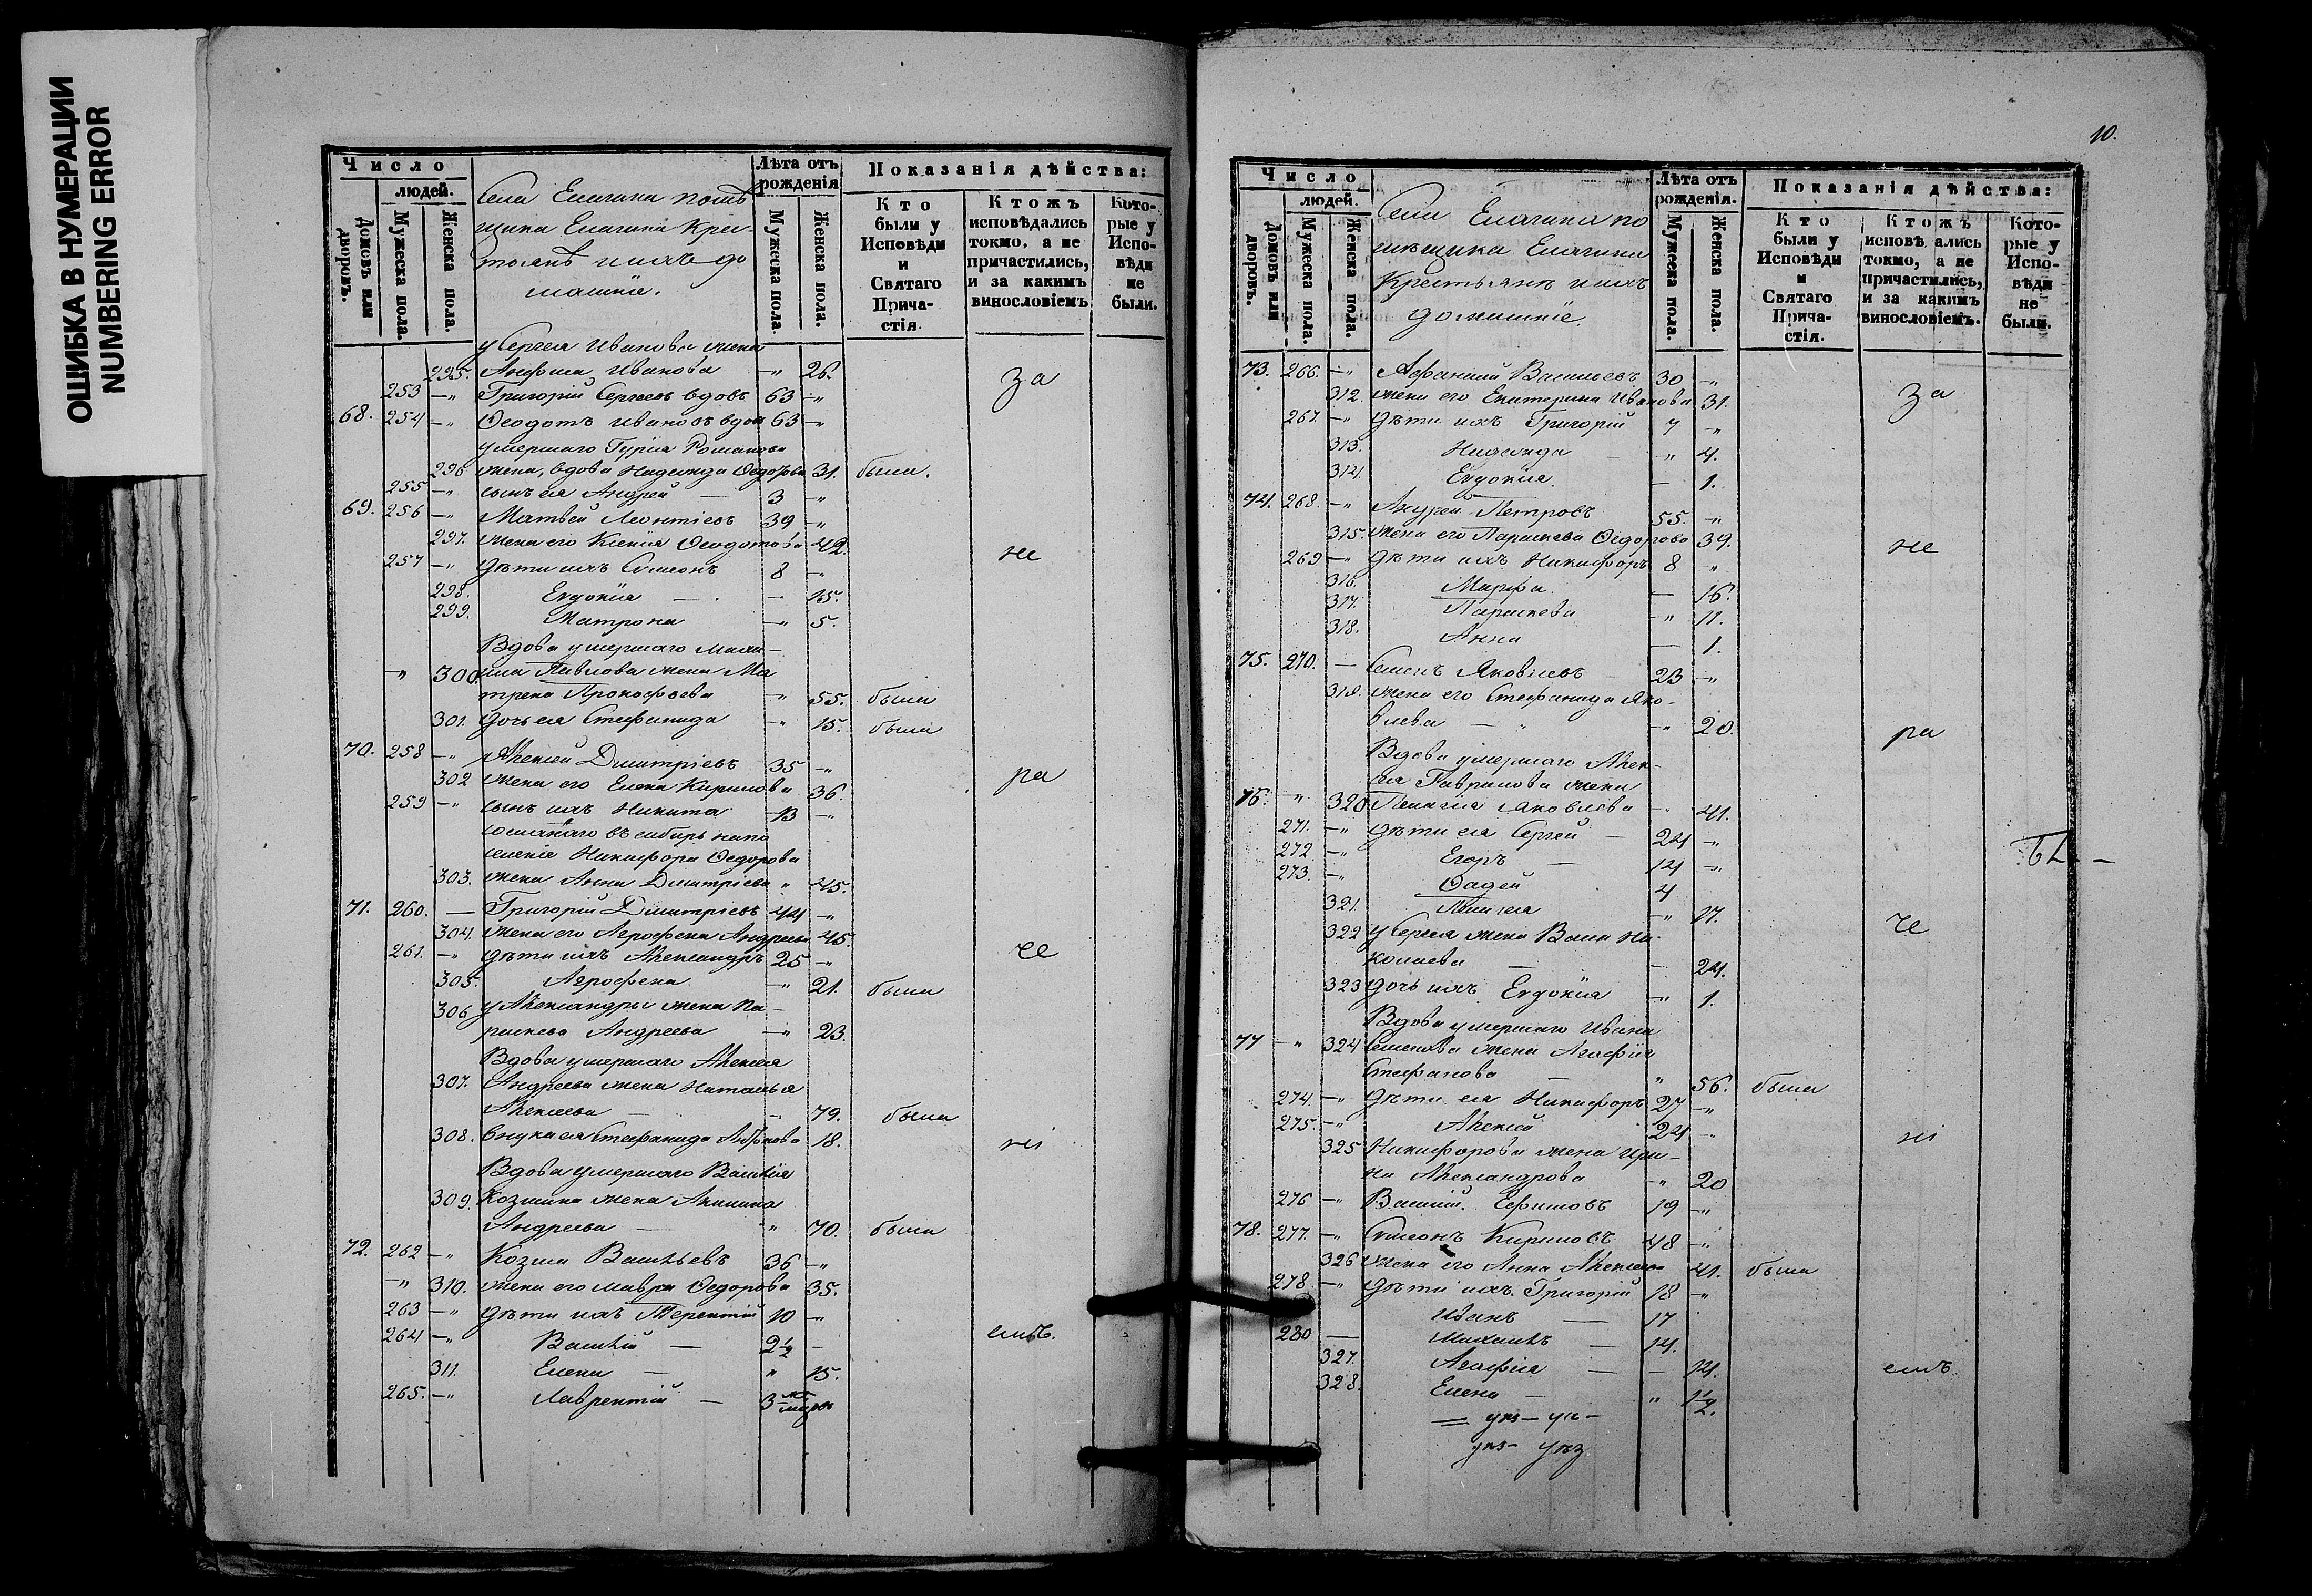 ОШИБКА В НУМЕРАЦИИ
NUMBERING ERROR
Число
людей.
Домовъ или дворовъ.
Мужеска пола.
Женска пола.
Села Елагина помѣ
щика Елагина Кре-
стьянѣ и ихъ до
машніе.
Лѣта отъ рожденія
Мужеска пола.
Женска пола.
Показанія дѣйства:
Кто были у Исповѣди и Святаго Прича- стія.
Ктожъ исповѣдались токмо, а не причастились, и за какимъ винословіемъ
Кото- рые у Испо- вѣди не были.
у Сергея Иванова жена
295. Анфиса Иванова —„ 26. за
253 —„ Григорій Сергѣевъ вдовъ 63 —„
68. 254 —„ Ѳеодотъ Ивановъ вдов 63 —„
умершаго Гурія Романова
296 жена, вдова Надежда Ѳедорова 31. была.
255 —„ сынъ ея Андрей — 3 —„
69. 256 —„ Матвей Леонтіевъ 39 —„
297. жена его Ксенія Ѳеодотова 42. не
257 —„ дѣти ихъ Симеонъ 8 —„
298. Евдокія — — 15.
299. Матрона —„ 5.
Вдова умершаго Макси-
„ 300 ма Павлова жена Ма
трена Прокофьева —„ 55. была
301. дочь ея Стефанида —„ 15. была
70. 258 —„ Алексей Димитріевъ 35 —„
302 жена его Елена Кирилова 36. ра
259 —„ сынъ ихъ Никита 13 —„
сосланаго въ сибирь на по
селеніе Никифора Ѳедорова
303. жена Анна Димитріева „ 45.
71. 260. — Григорій Димитріевъ 44 —„
304. жена его Агрофена Андреева 45
261. —„ дѣти ихъ Александръ 25 —„ че
305. Агрофена —„ 21. была
306 у Александры жена Па-
раскева Андреева —„ 23.
Вдова умершаго Алексея
307. Андреева жена Наталья
Алексеева — — 79. была
308. внука ея Стефанида 18. ні
Вдова умершаго Василія
309. Козмина жена Акилина
Андреева — „ 70. была
72. 262 —„ Козма Васильевъ 36 —„
—„ 310. жена его Мавра Ѳедорова 35.
263 —„ дѣти ихъ Терентій 10 —„
264 —„ Василій — 2½ — емъ.
311. Елена — „ 15.
265. —„ Лаврентій — 3
10.
Число
людей.
Домовъ или дворовъ.
Мужеска пола.
Женска пола.
Села Елагина по
мѣщика Елагина
Крестьянѣ и ихъ
домашніе.
Лѣта отъ рожденія.
Мужеска пола.
Женска пола.
Показанія дѣйства:
Кто были у Исповѣди и Святаго Прича- стія.
Ктожъ исповѣ ались токмо, а не причастились, и за какимъ винословіемъ.
Кото- рые у Испо- вѣди не были.
73. 266. —„ Афанасій Васильевъ 30 —„
312. жена его Екатерина Иванова 31. за
267. —„ дѣти ихъ Григорій 7 —„
313. Надежда — „ 4.
314. Евдокія. — 1.
74. 268. —„ Андрей Петровъ 55. —„
315. жена его Параскева Ѳедорова 39. не
269 —„ дѣти ихъ Никифоръ 8 „
316. Марфа — 16.
317. Параскева —„ 11.
318. Анна — 1.
75. 270. — Семенъ Яковлевъ 23 —„
319. жена его Стефанида Яко-
влева — „ —„ 20. ра
Вдова умершаго Алек-
сея Гаврилова жена
76. „ 320 Пелагія Яковлева —„ 41.
271. —„ дѣти ея Сергей — 24 —„
272 —„ Егоръ — 14 —„
273. —„ Ѳадей 4
321. Пелагея —„ 17.
322 у Сергея жена Васи Ни
колаева — — 24. че
323 дочь ихъ Евдокія —„ 1.
Вдова умершаго Ивана
77 —„ 324 Семенова жена Агафія
Стефанова — „ 56. была
274. —„ дѣти ея Никифоръ 27 —„
275. —„ Алексей 24 —„ ні
325 Никифорова жена Ири-
на Александрова —„ 20
276 —„ Василій Ефимовъ 19 —„
78. 277. —„ Симеонъ Кириловъ 48 —„
326 жена его Анна Алексеева 41. была
278. —„ дѣти ихъ Григорій 18 —„
Иванъ — 17
280 — Михаилъ — 14.
327. Агафія — — 14. емъ
328. Елена — „ 1½.